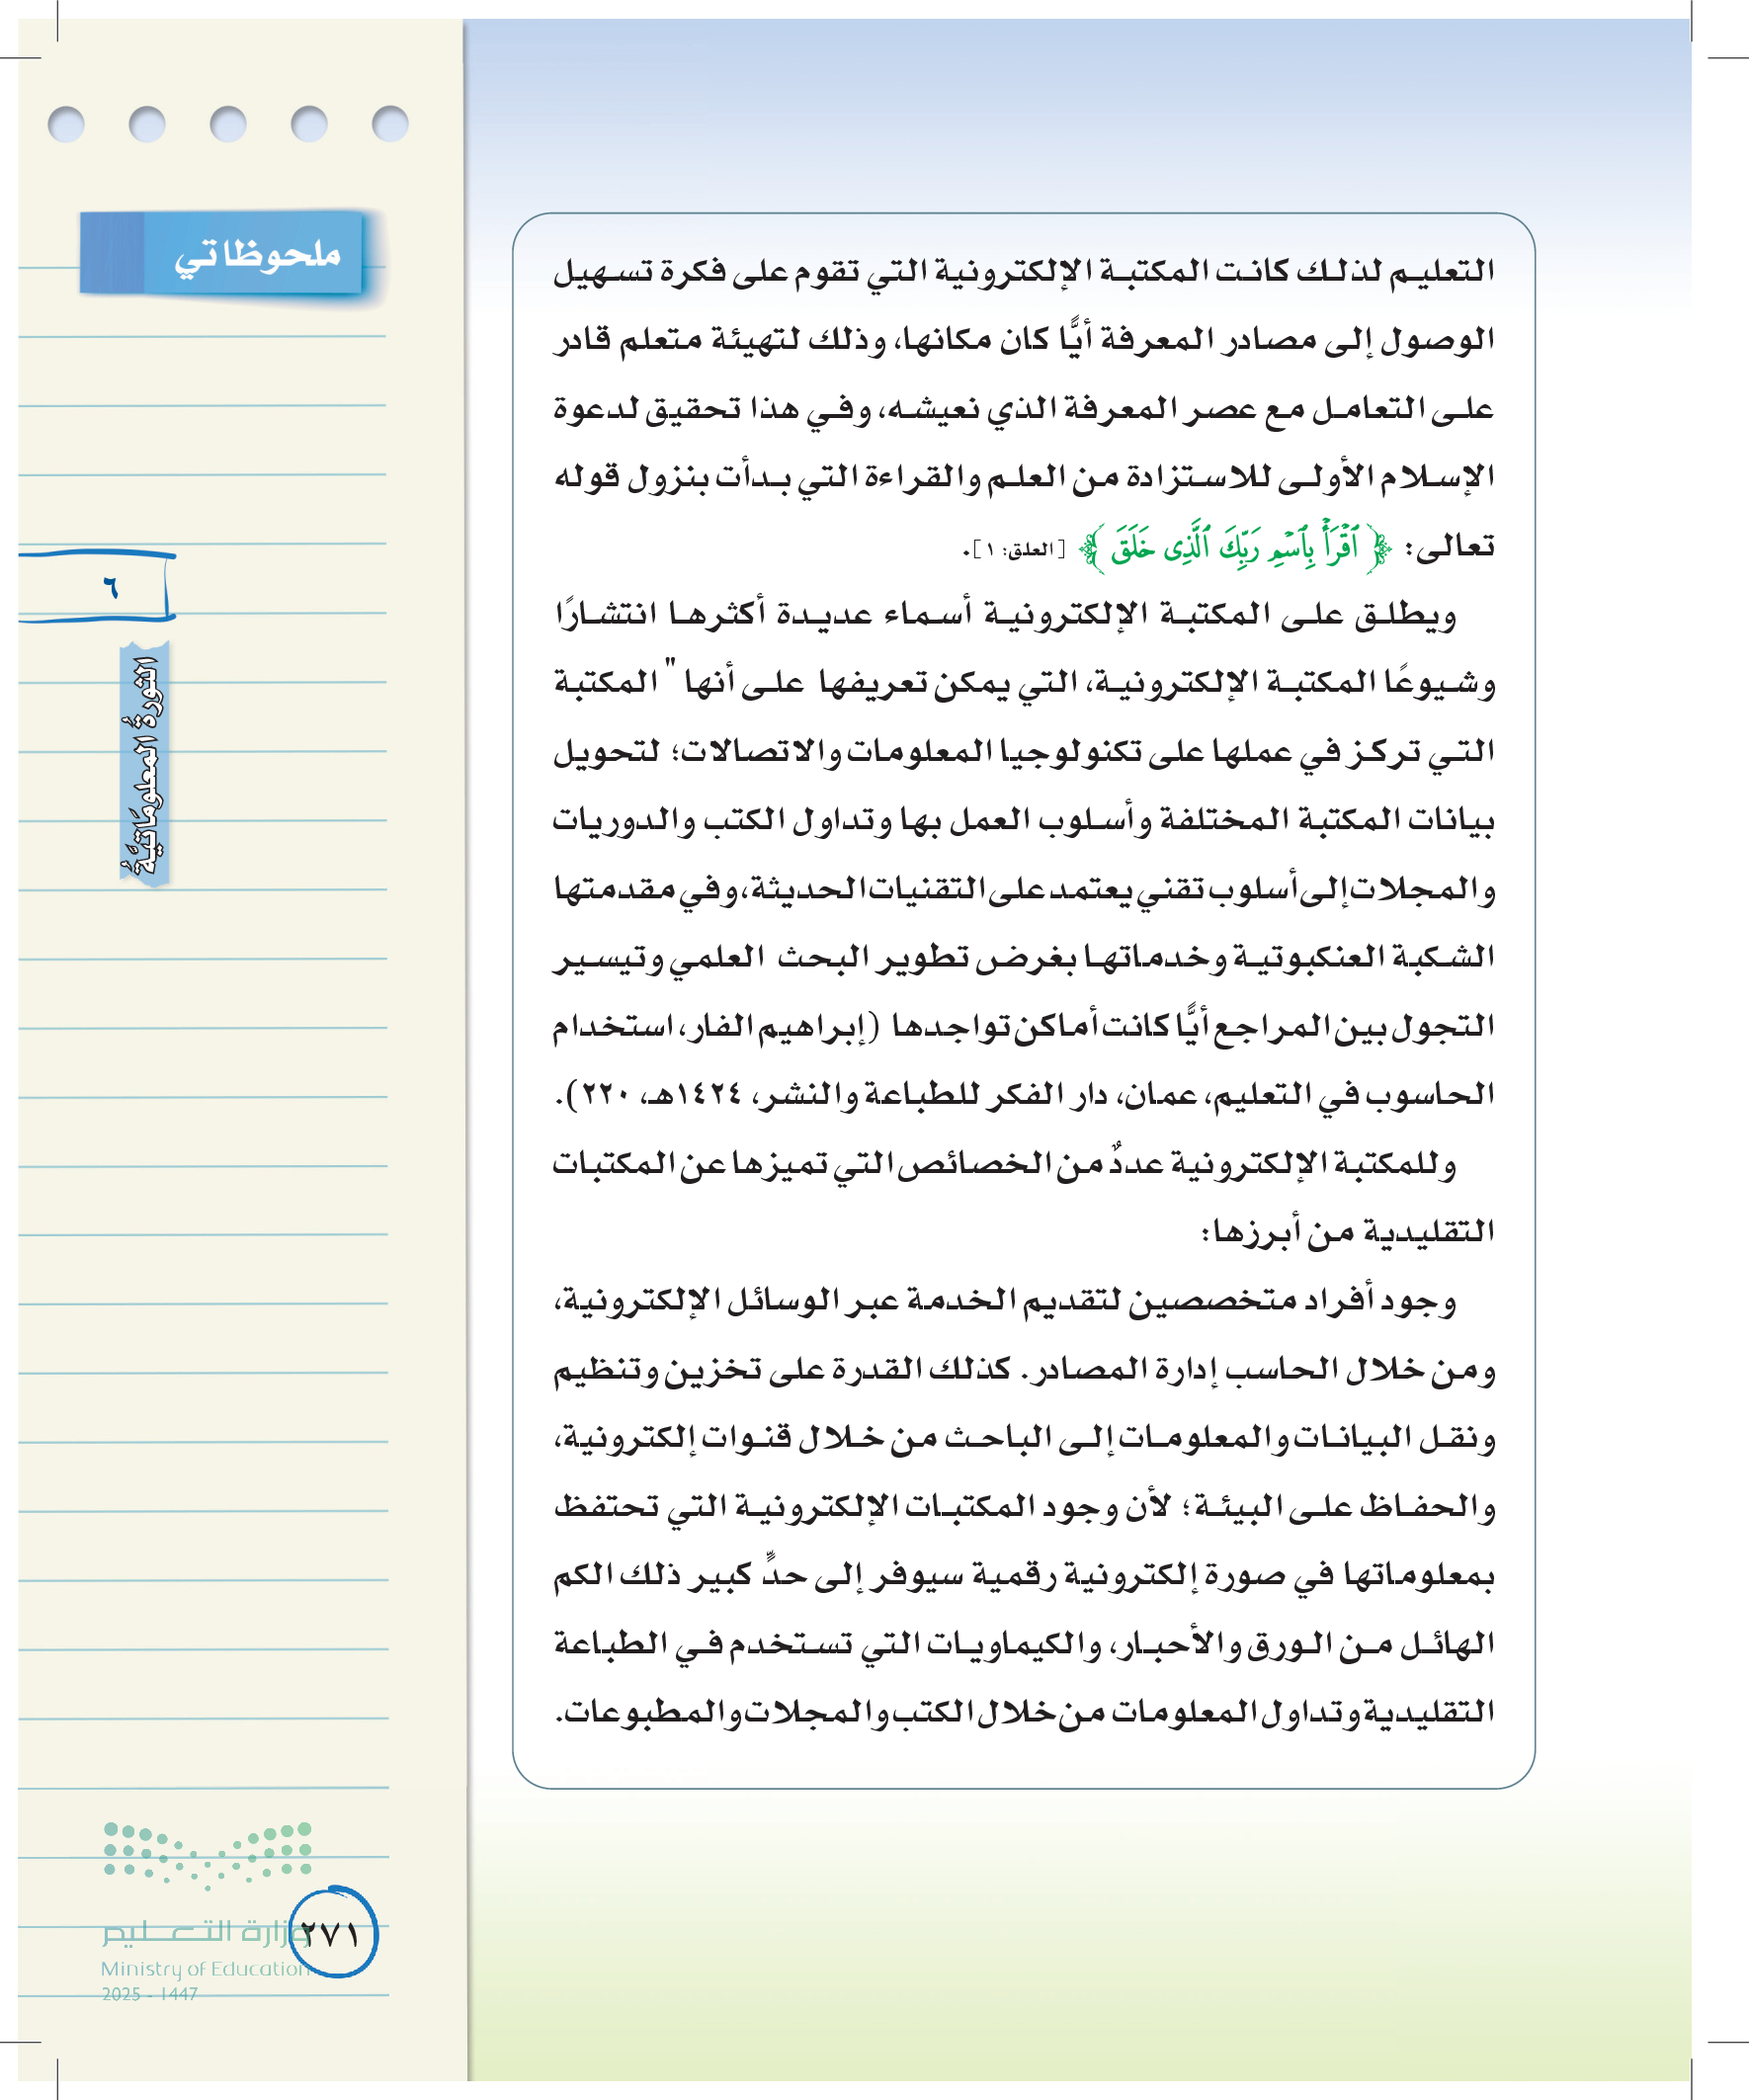 التعليم لذلك كانت المكتبة الإلكترونية التي تقوم على فكرة تسهيل
الوصول إلى مصادر المعرفة أيًّا كان مكانها، وذلك لتهيئة متعلم قادر
على التعامل مع عصر المعرفة الذي نعيشه، وفي هذا تحقيق لدعوة
الإسلام الأولى للاستزادة من العلم والقراءة التي بدأت بنزول قوله
تعالى: ﴿ ٱقۡرَأۡ بِٱسۡمِ رَبِّكَ ٱلَّذِى خَلَقَ ﴾ [العلق: ١].
ويطلق على المكتبة الإلكترونية أسماء عديدة أكثرها انتشارًا
وشيوعًا المكتبة الإلكترونية، التي يمكن تعريفها على أنها " المكتبة
التي تركز في عملها على تكنولوجيا المعلومات والاتصالات؛ لتحويل
بيانات المكتبة المختلفة وأسلوب العمل بها وتداول الكتب والدوريات
والمجلات إلى أسلوب تقني يعتمد على التقنيات الحديثة، وفي مقدمتها
الشكبة العنكبوتية وخدماتها بغرض تطوير البحث العلمي وتيسير
التجول بين المراجع أيًّا كانت أماكن تواجدها (إبراهيم الفار، استخدام
الحاسوب في التعليم، عمان، دار الفكر للطباعة والنشر، ١٤٢٤هـ، ٢٢٠).
وللمكتبة الإلكترونية عددٌ من الخصائص التي تميزها عن المكتبات
التقليدية من أبرزها:
وجود أفراد متخصصين لتقديم الخدمة عبر الوسائل الإلكترونية،
ومن خلال الحاسب إدارة المصادر. كذلك القدرة على تخزين وتنظيم
ونقل البيانات والمعلومات إلى الباحث من خلال قنوات إلكترونية،
والحفاظ على البيئة؛ لأن وجود المكتبات الإلكترونية التي تحتفظ
بمعلوماتها في صورة إلكترونية رقمية سيوفر إلى حدٍّ كبير ذلك الكم
الهائل من الورق والأحبار، والكيماويات التي تستخدم في الطباعة
التقليدية وتداول المعلومات من خلال الكتب والمجلات والمطبوعات.
ملحوظاتي
٦
الثورةُ المعلومَاتيَّةُ
وزارة التعليم
Ministry of Education
2025 - 1447
٢٧١